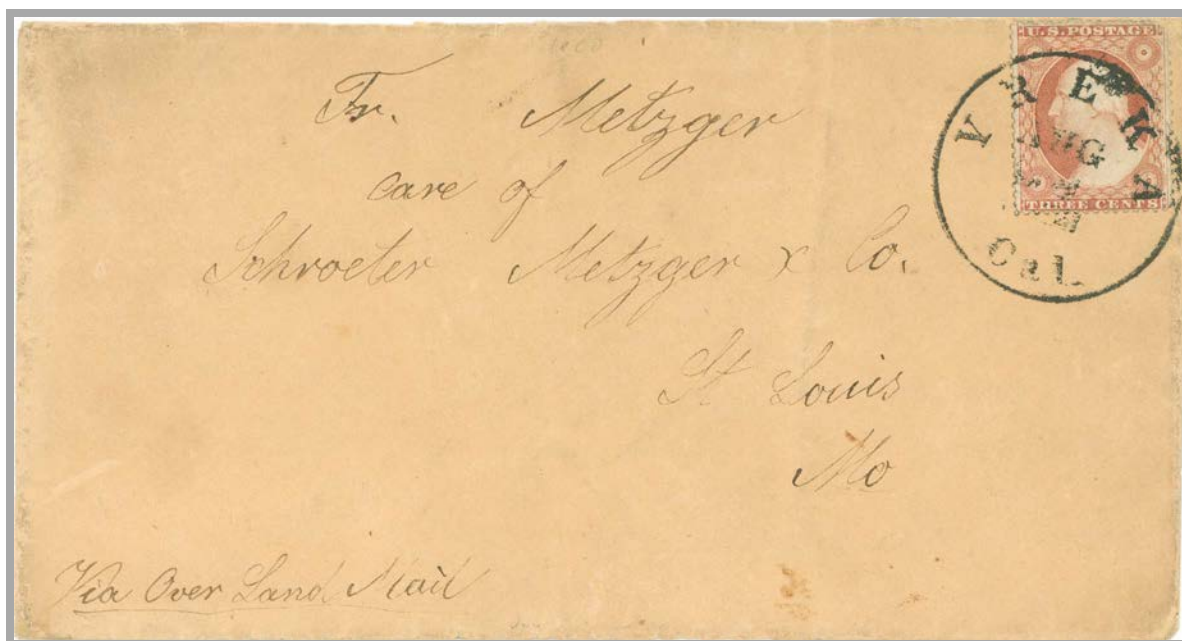 U.S. POSTAGE
THREE CENTS
YREKA
AUG
Cal.
Fr. Metzger
care of
Schroeter Metzger & Co.
St Louis
Mo
Via Over Land Mail